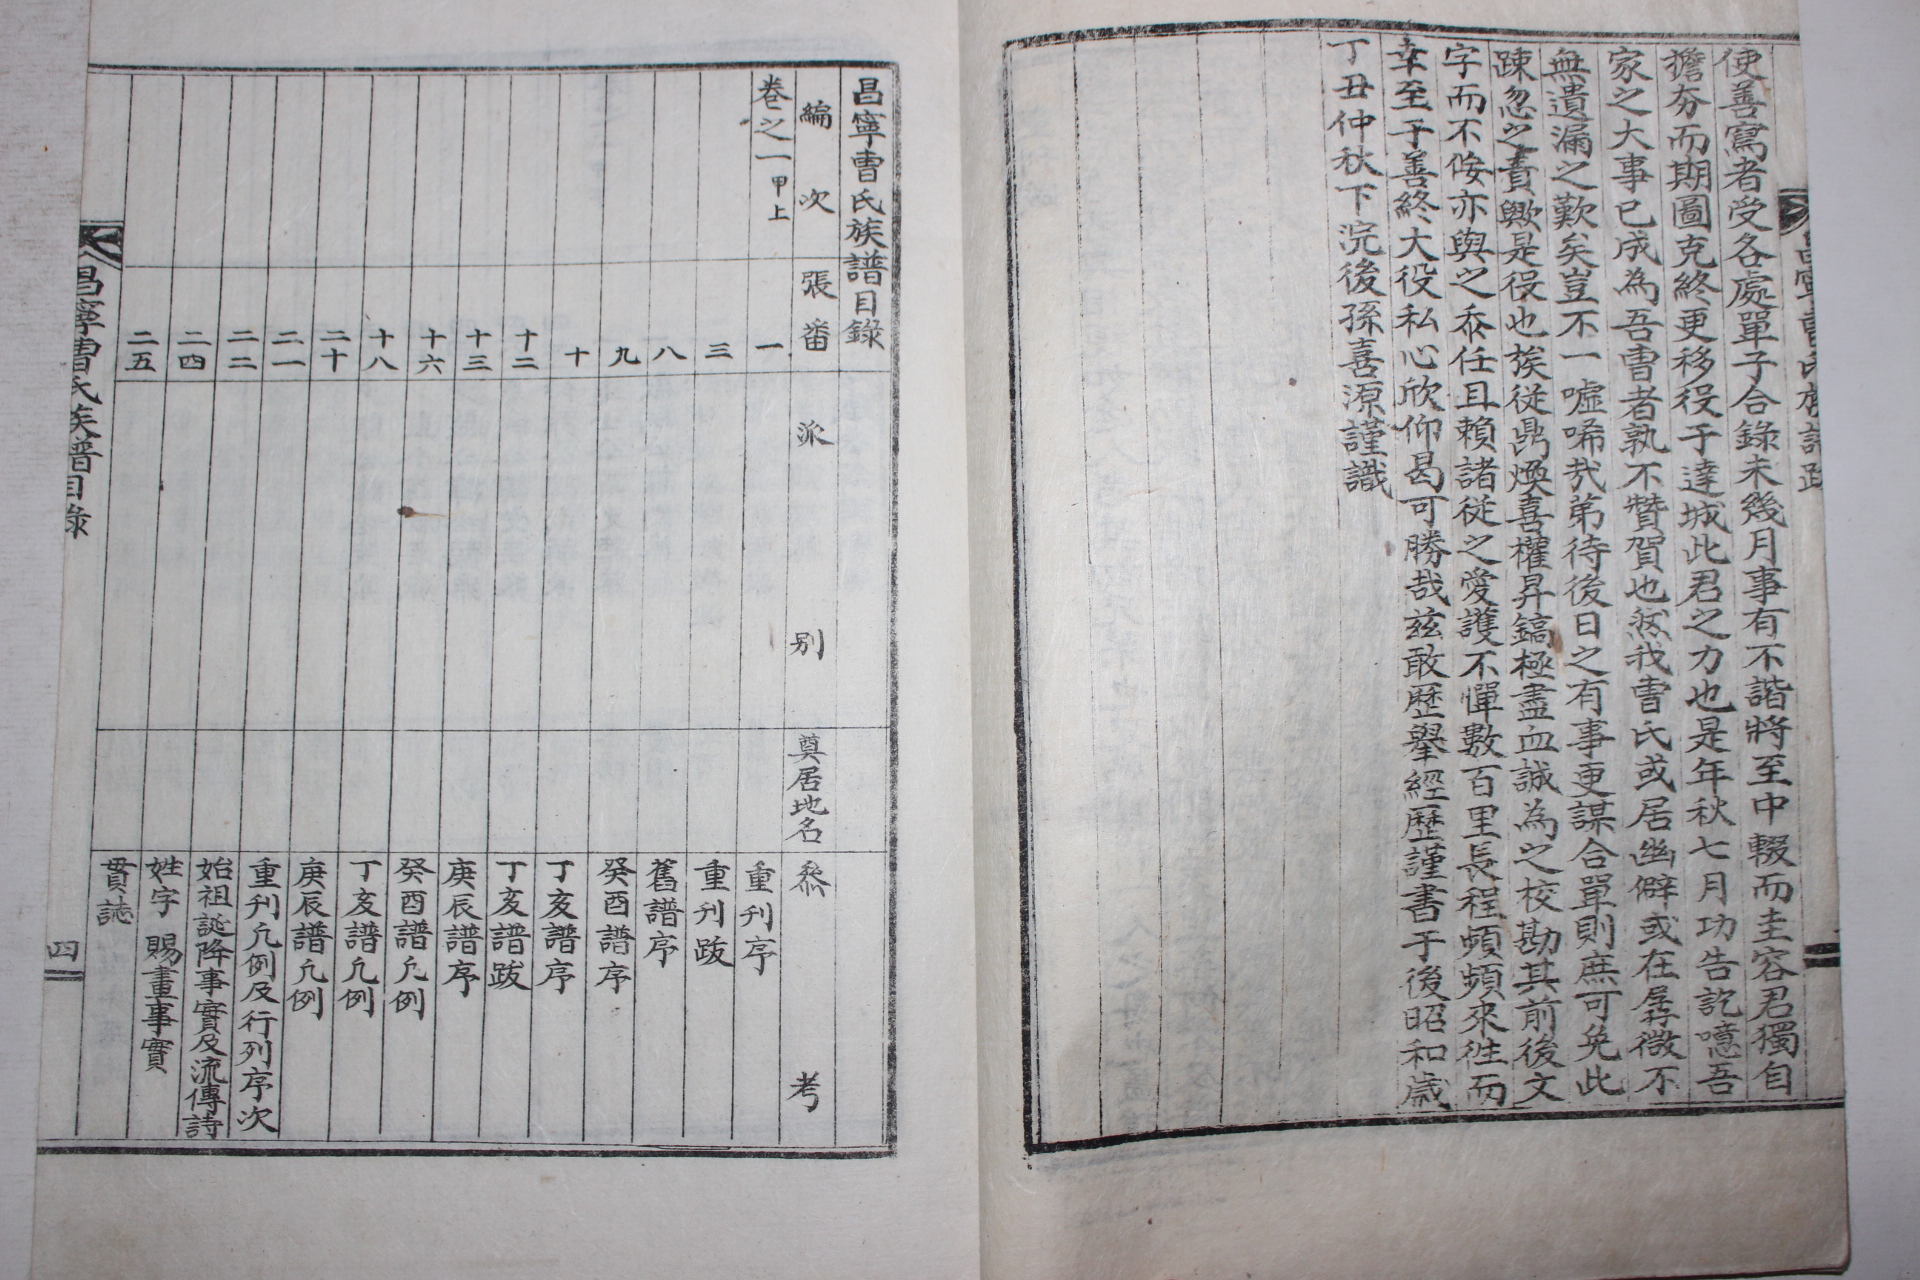 使善寫者受各處單子合錄未幾月事有不諧將至中輟而圭容君獨自
擔夯而期圖克終更移役于達城此君之力也是年秋七月功告訖噫吾
家之大事已成為吾曺者孰不贊賀也然我曺氏或居幽僻或在孱微不
無遺漏之歎矣豈不一噓唏㢤弟待後日之有事更謀合單則庶可免此
踈忽之責歟是役也族従鼎煥喜權昇鎬極盡血誠為之校勘其前後文
字而不佞亦與之忝任且賴諸従之愛護不憚數百里長程頻頻來徃而
幸至于善終大役私心欣仰曷可勝哉玆敢歷擧經歷謹書于後昭和歲
丁丑仲秋下浣後孫喜源謹識
昌寧曺氏族譜目錄
編次 張番 派别 奠居地名 叅考
卷之一 甲上 一 重刊序
三 重刊跋
八 舊譜序
九 癸酉譜序
十 丁亥譜序
十二 丁亥譜跋
十三 庚辰譜序
十六 癸酉譜凡例
十八 丁亥譜凡例
二十 庚辰譜凡例
二一 重刊凡例及行列序次
二二 始祖誕降事實及流傳詩
二四 姓字 賜畫事實
二五 貫誌
昌寧曺氏族譜目錄 四